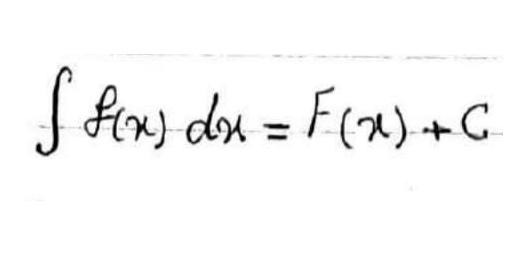 ∫ f(x) dx = F(x) + C